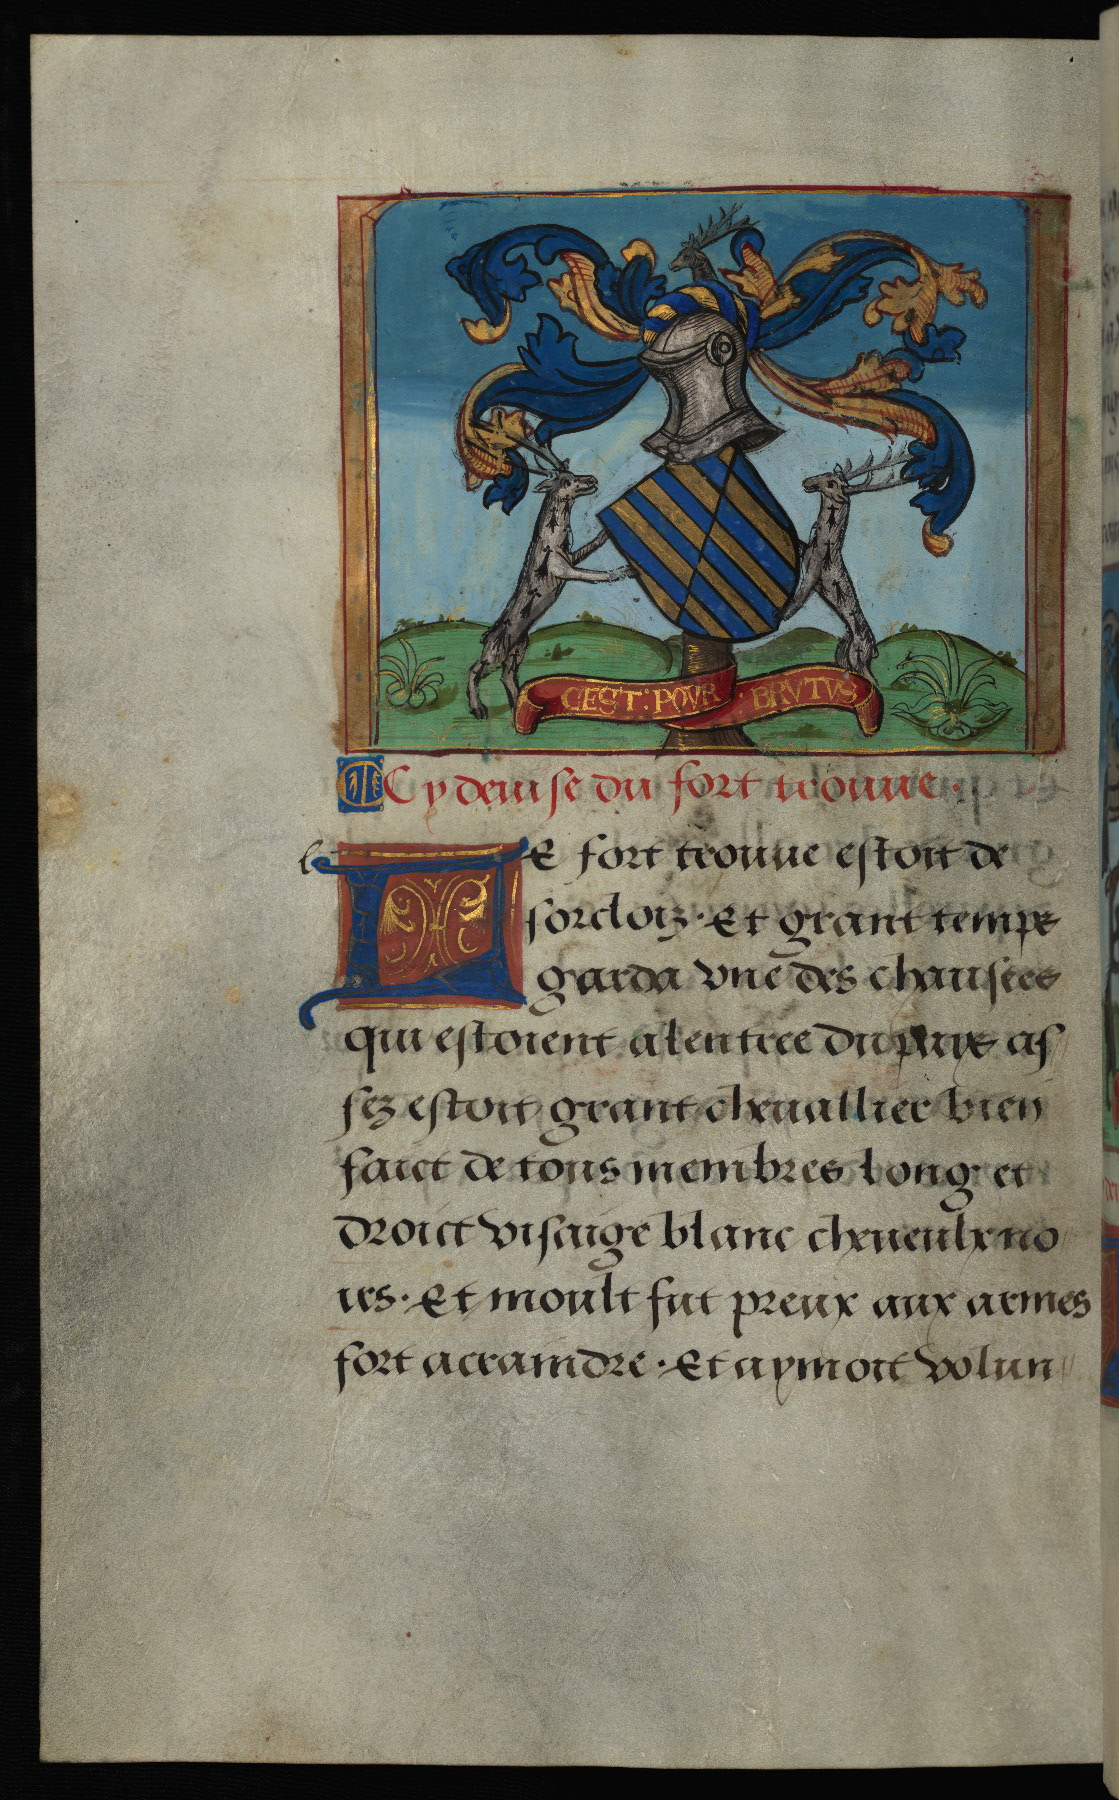 CEST: POVR · BRVTVS
Cy deuise du fort trouue.
l
LE fort trouue estoit de
sorcloiz · Et grant temps
garda vne des chausees
qui estoient alentree du pays as
sez estoit grant cheuallier bien
faict de tous membres long et
droict visaige blanc cheueulx no
irs · Et moult fut preux aux armes
fort acraindre · Et aymoit volun